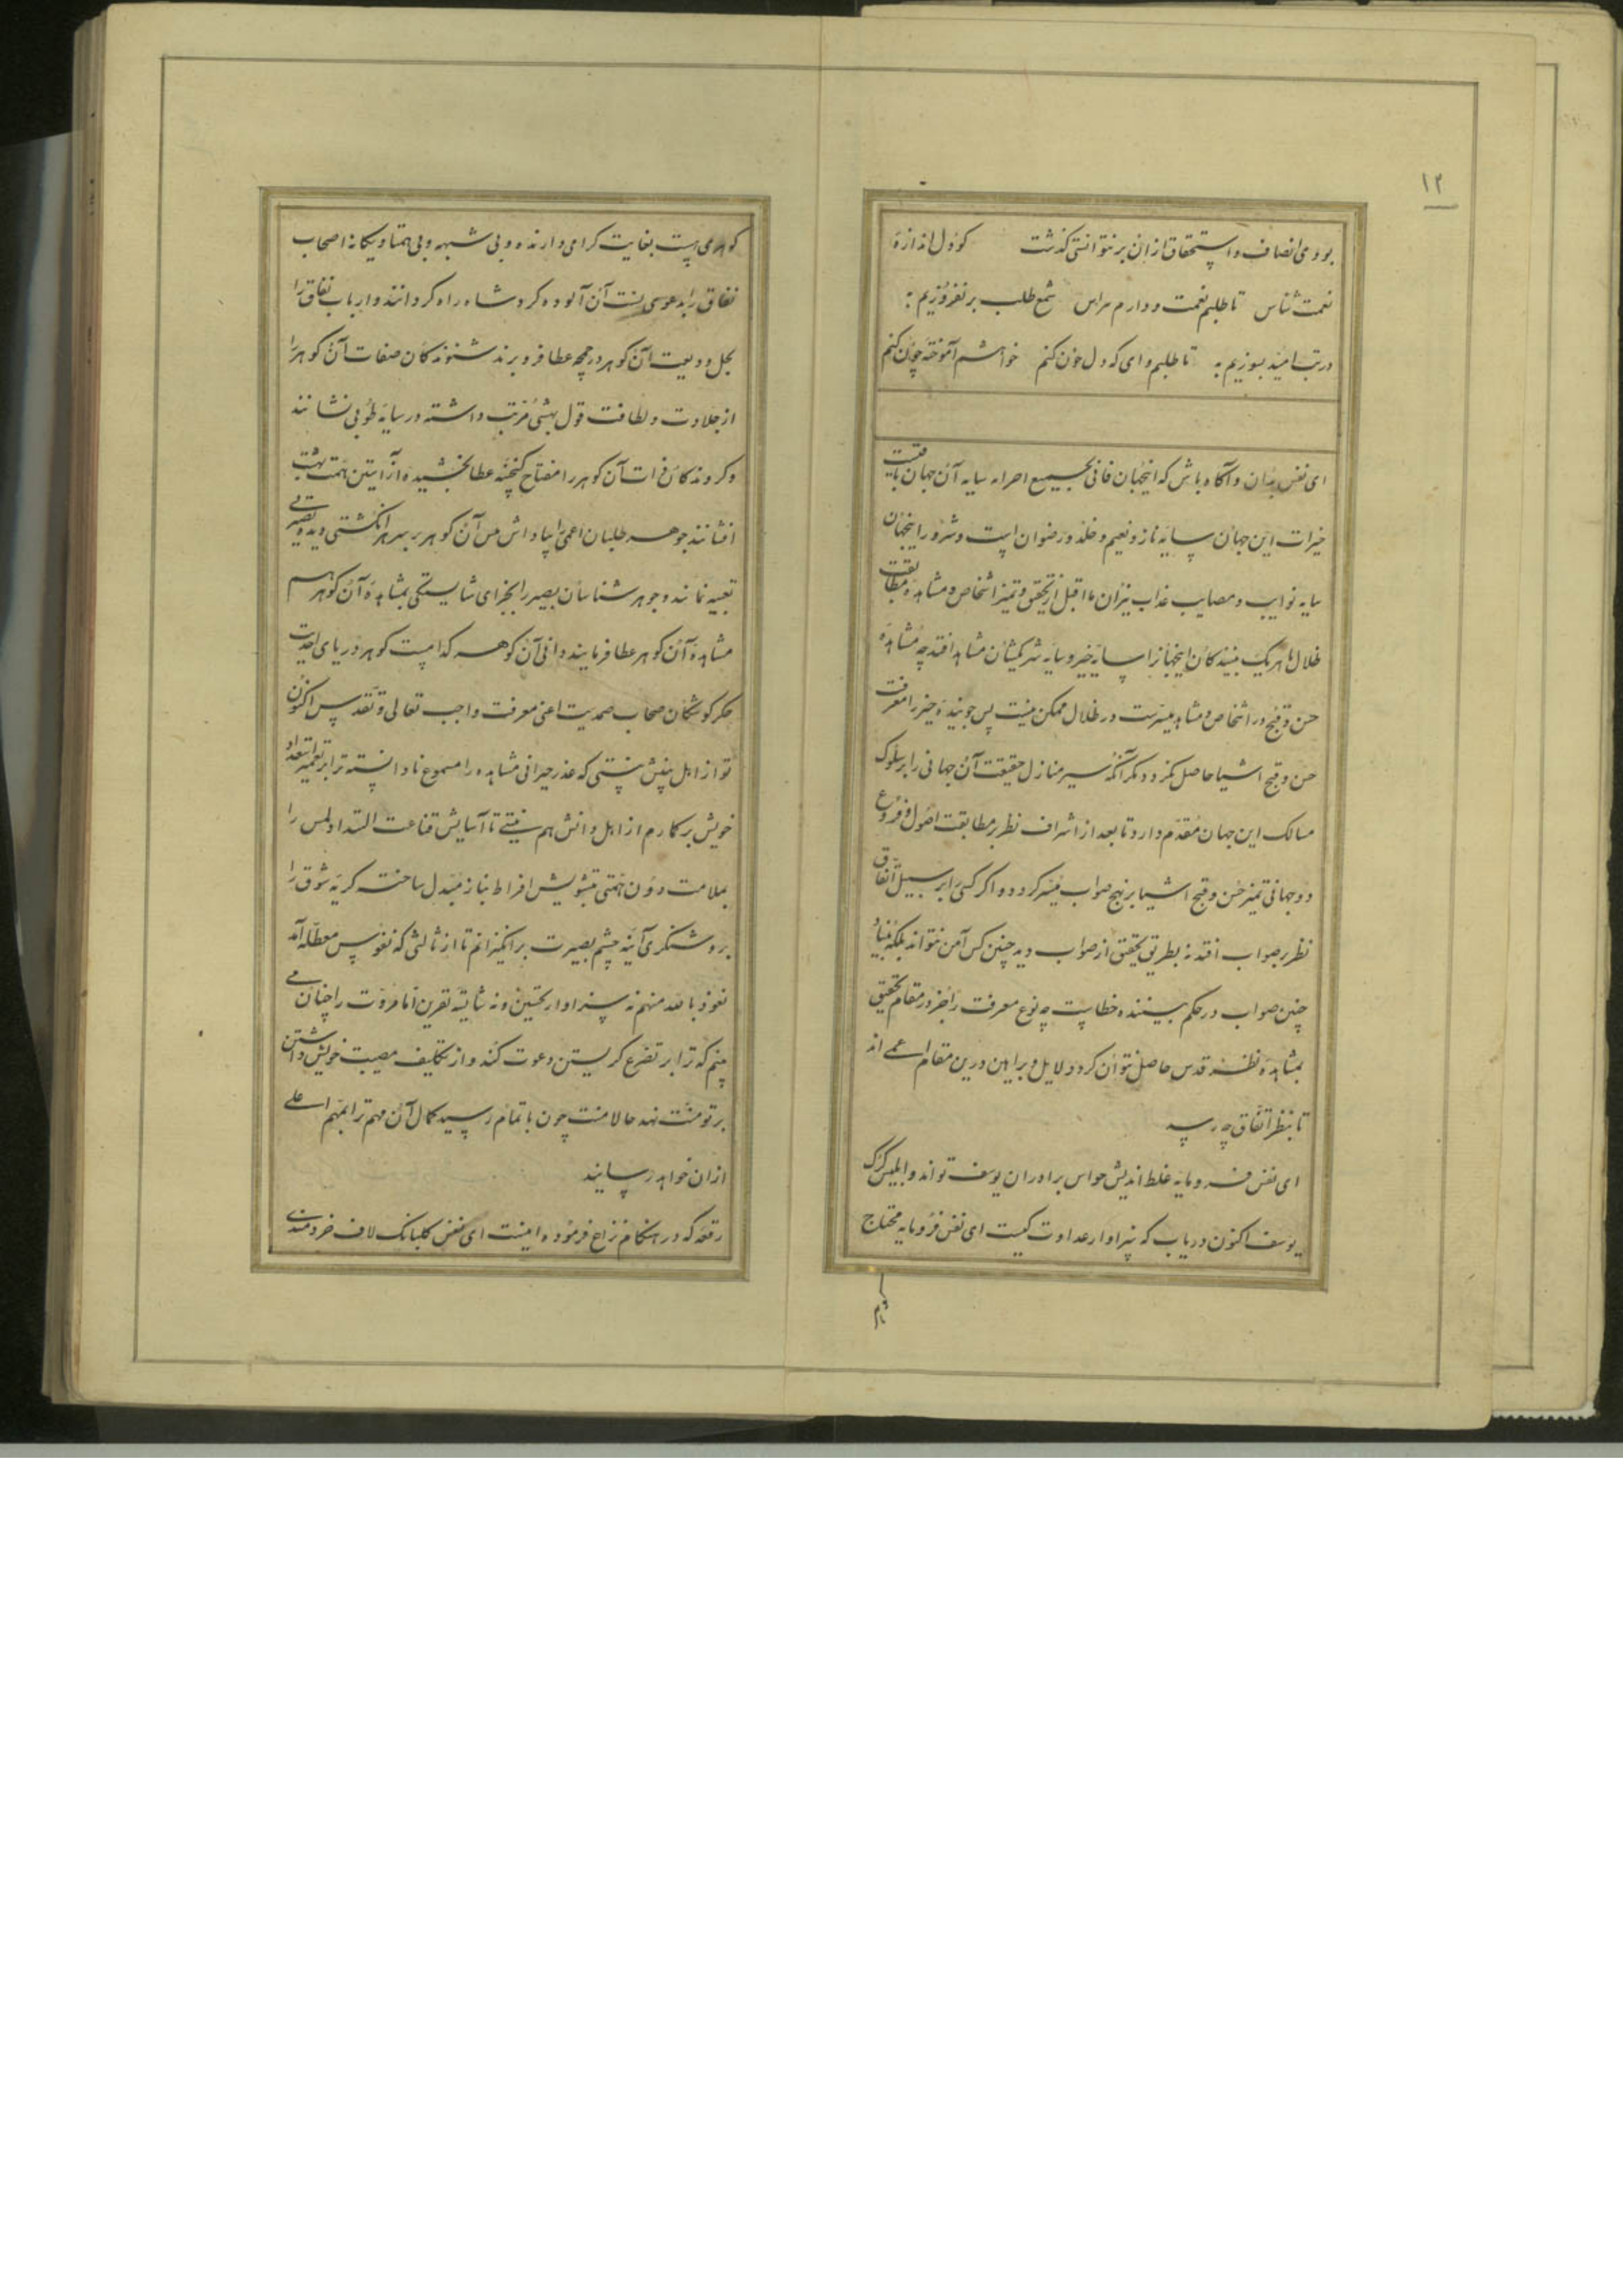 ۱۲
بودی انصاف و استحقاق ازان برنتوانستی گذشت کو دل اندازهٔ
نعمت شناس تا طلبم نعمت و دارم هراس شمع طلب برنفروزیم
در تب امید بسوزیم تا طلبم وای که دل خون کنم خواهشم آموخته چون کنم
ای نفس بدان و آگاه باش که اینجهان فانی بجمیع اجزاء سایه آن جهان باقیست
خیرات این جهان سایه ناز و نعیم و خلد و رضوان است و شرور اینجهان
سایه نوایب و مصایب عذاب نیران اما قبل از تحقیق و تمیز اشخاص و مشاهده مطابقت
ظلال با هر یک بینندکان اینجهانرا سایهٔ خیر و سایهٔ شر یکسان مشاهد افتد چه مشاهدهٔ
حسن و قبح در اشخاص و مشاهد میسرست در ظلال ممکن نیست پس جوینده خیر را معرفت
حسن و قبح اشیا حاصل نکردد مکر آنکه سیر منازل حقیقت آن جهانی را بر سلوک
مسالک این جهان مقدم دارد تا بعد از اشراف نظر بر مطابقت اصول و فروع
دو جهانی تمیز حسن و قبح اشیا بر نهج صواب میسر کردد و اکر کسی را بر سبیل اتفاق
نظر بر صواب افتد نه بطریق تحقیق از صواب دید چنین کس آمن نتواند بلکه بنیاد
چنین صواب در حکم بیننده خطاست چه نوع معرفت را جز در مقام تحقیق
بمشاهده نظر قدس حاصل نتوان کرد و دلایل و براهین درین مقام اعمی اند
تا بنظر اتفاق چه رسد
ای نفس فرومایه غلط اندیش حواس برادران یوسف تواند و ابلیس کرک
یوسف اکنون دریاب که سزاوار عداوت کیست ای نفس فرومایه محتاج
کوهری است بغایت کرامی دارنده و بی شبهه و بی همتا و یکانه اصحاب
نفاق را بدعوی آن آلوده کرد شاه راه کردانند و ارباب نفاق را
بحل ودیعت آن کوهر در عطا فرو برند شنوندکان صفات آن کوهر را
از حلاوت و لطافت قول بهشتی مرتب داشته در سایه طوبی نشانند
و کروندکان ذات آن کوهر را مفتاح کنجینه عطا بخشیده از آستین همت بهشت
افشانند جوهر طلبان اعمی را پاداش مس آن کوهر بر سر هر انکشتی دیده بصیرتی
تعبیه نمایند و جوهر شناسان بصیر را بجزای شایستکی بمشاهدهٔ آن کوهر هم
مشاهدهٔ آن کوهر عطا فرمایند دانی آن کوهر کدامست کوهر دریای احدیت
جکر کوشکان صحاب صمدیت اعنی معرفت واجب تعالی و تقدس اکنون
تو از اهل بینش نیستی که عذر حیرانی مشاهده را مسموع نادانسته ترا بر تعمیر استعداد
خویش بر کارم از اهل دانش هم نیستی تا آسایش قناعت التذاذ لمس را
بملامت دون همتی بتشویش افراط نیاز مبدل ساخته کریه شوق را
بروشنکری آینه چشم بصیرت برانکیزانم تا از ثالثی که نفوس معطله اند
نعوذ بالله منهم نه سزاوار تحسین و نه شایسته نفرین اما مروت را چنان می
بینم که ترا بر تضرع کریستن دعوت کند و از تکلیف مصیبت خویش داشتن
بر تو منت نهد حالا منت چون باتمام رسید کمال آن مهم ترا بمهم اعلی
ازان خواهد رسانید
رقعه که در هنکام نزاع فرموده اینست ای نفس کلبانک لاف خردمندی